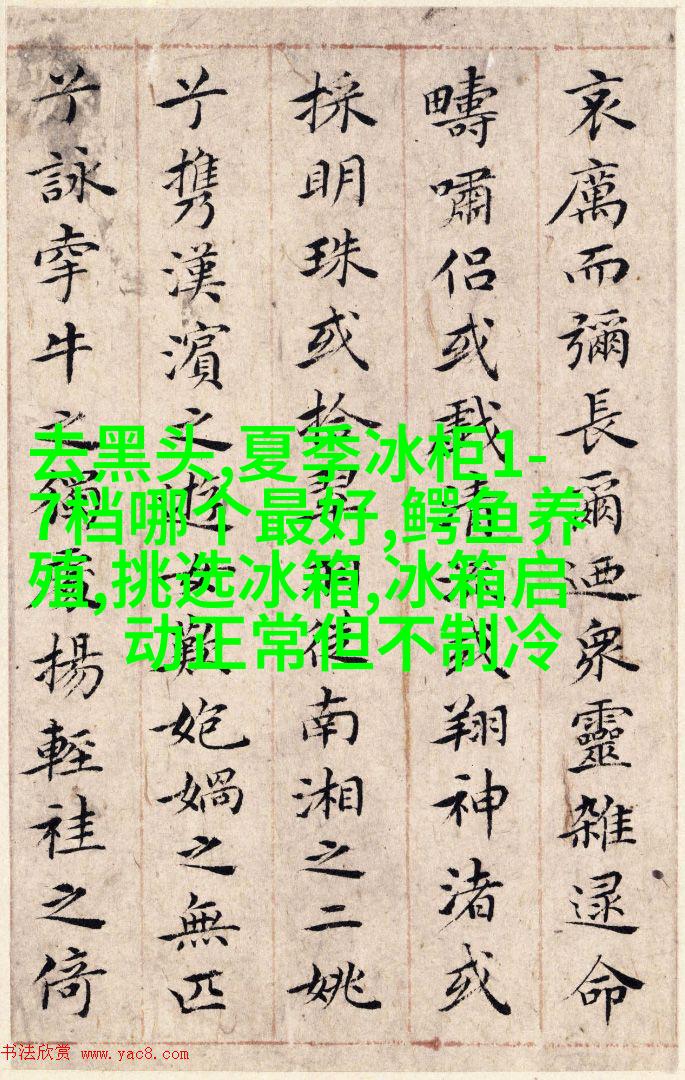 哀厲而彌長爾迺衆靈雜遝命
疇嘯侶或戲清流或翔神渚或
採明珠或拾翠羽從南湘之二姚
兮携漢濱之遊女歎媧之無匹
兮詠牽牛之獨處揚輕袿之倚
去黑头,夏季冰柜1-
7档哪个最好,鳄鱼养
殖,挑选冰箱,冰箱启
动正常但不制冷
书法欣赏 www.yac8.com